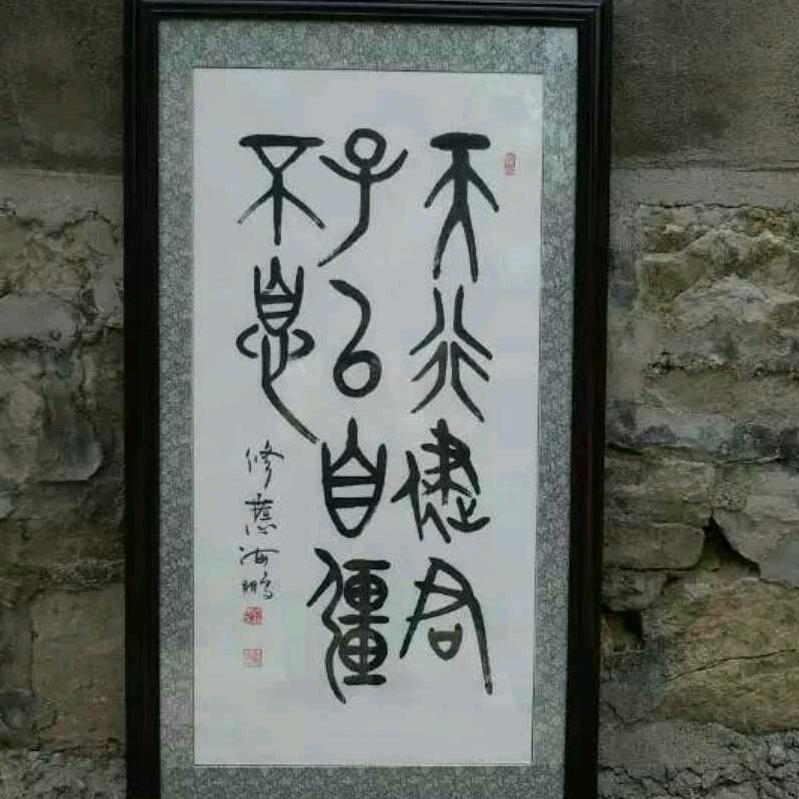 天行健君
子以自彊
不息
修 海鹏